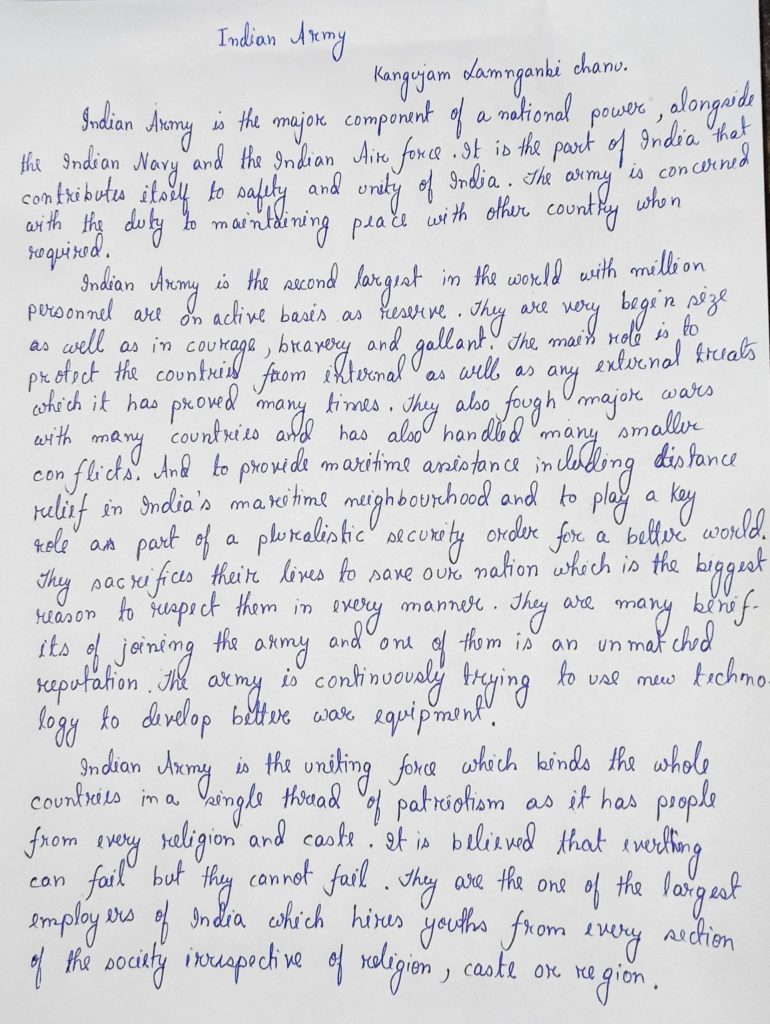 Indian Army
Kangujam Lamnganbi chanu.
Indian Army is the major component of a national power, alongside
the Indian Navy and the Indian Air force. It is the part of India that
contributes itself to safety and unity of India. The army is concerned
with the duty to maintaining peace with other country when
required.
Indian Army is the second largest in the world with million
personnel are on active basis as reserve. They are very begin size
as well as in courage, bravery and gallant. The main role is to
protect the countries from internal as well as any external treats
which it has proved many times. They also fough major wars
with many countries and has also handled many smaller
conflicts. And to provide maritime assistance including distance
relief in India's maritime neighbourhood and to play a key
role as part of a pluralistic security order for a better world.
They sacrifices their lives to save our nation which is the biggest
reason to respect them in every manner. They are many benef-
its of joining the army and one of them is an unmatched
reputation. The army is continuously trying to use new techno
logy to develop better war equipment.
Indian Army is the uniting force which binds the whole
countries in a single thread of patriotism as it has people
from every religion and caste. It is believed that everthing
can fail but they cannot fail. They are the one of the largest
employers of India which hires youths from every section
of the society irrespective of religion, caste or region.